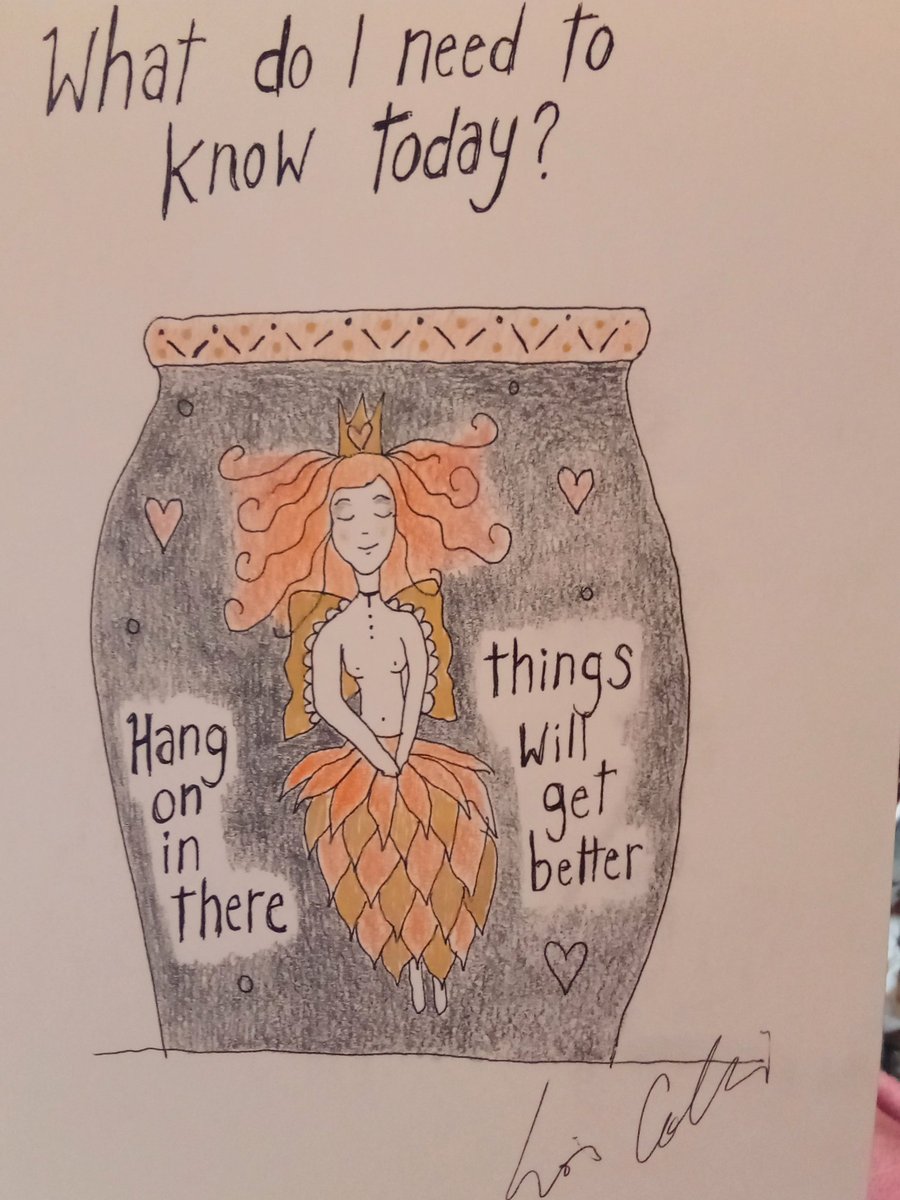 What do I need to
know today?
Hang
on
in
there
things
will
get
better
Lois